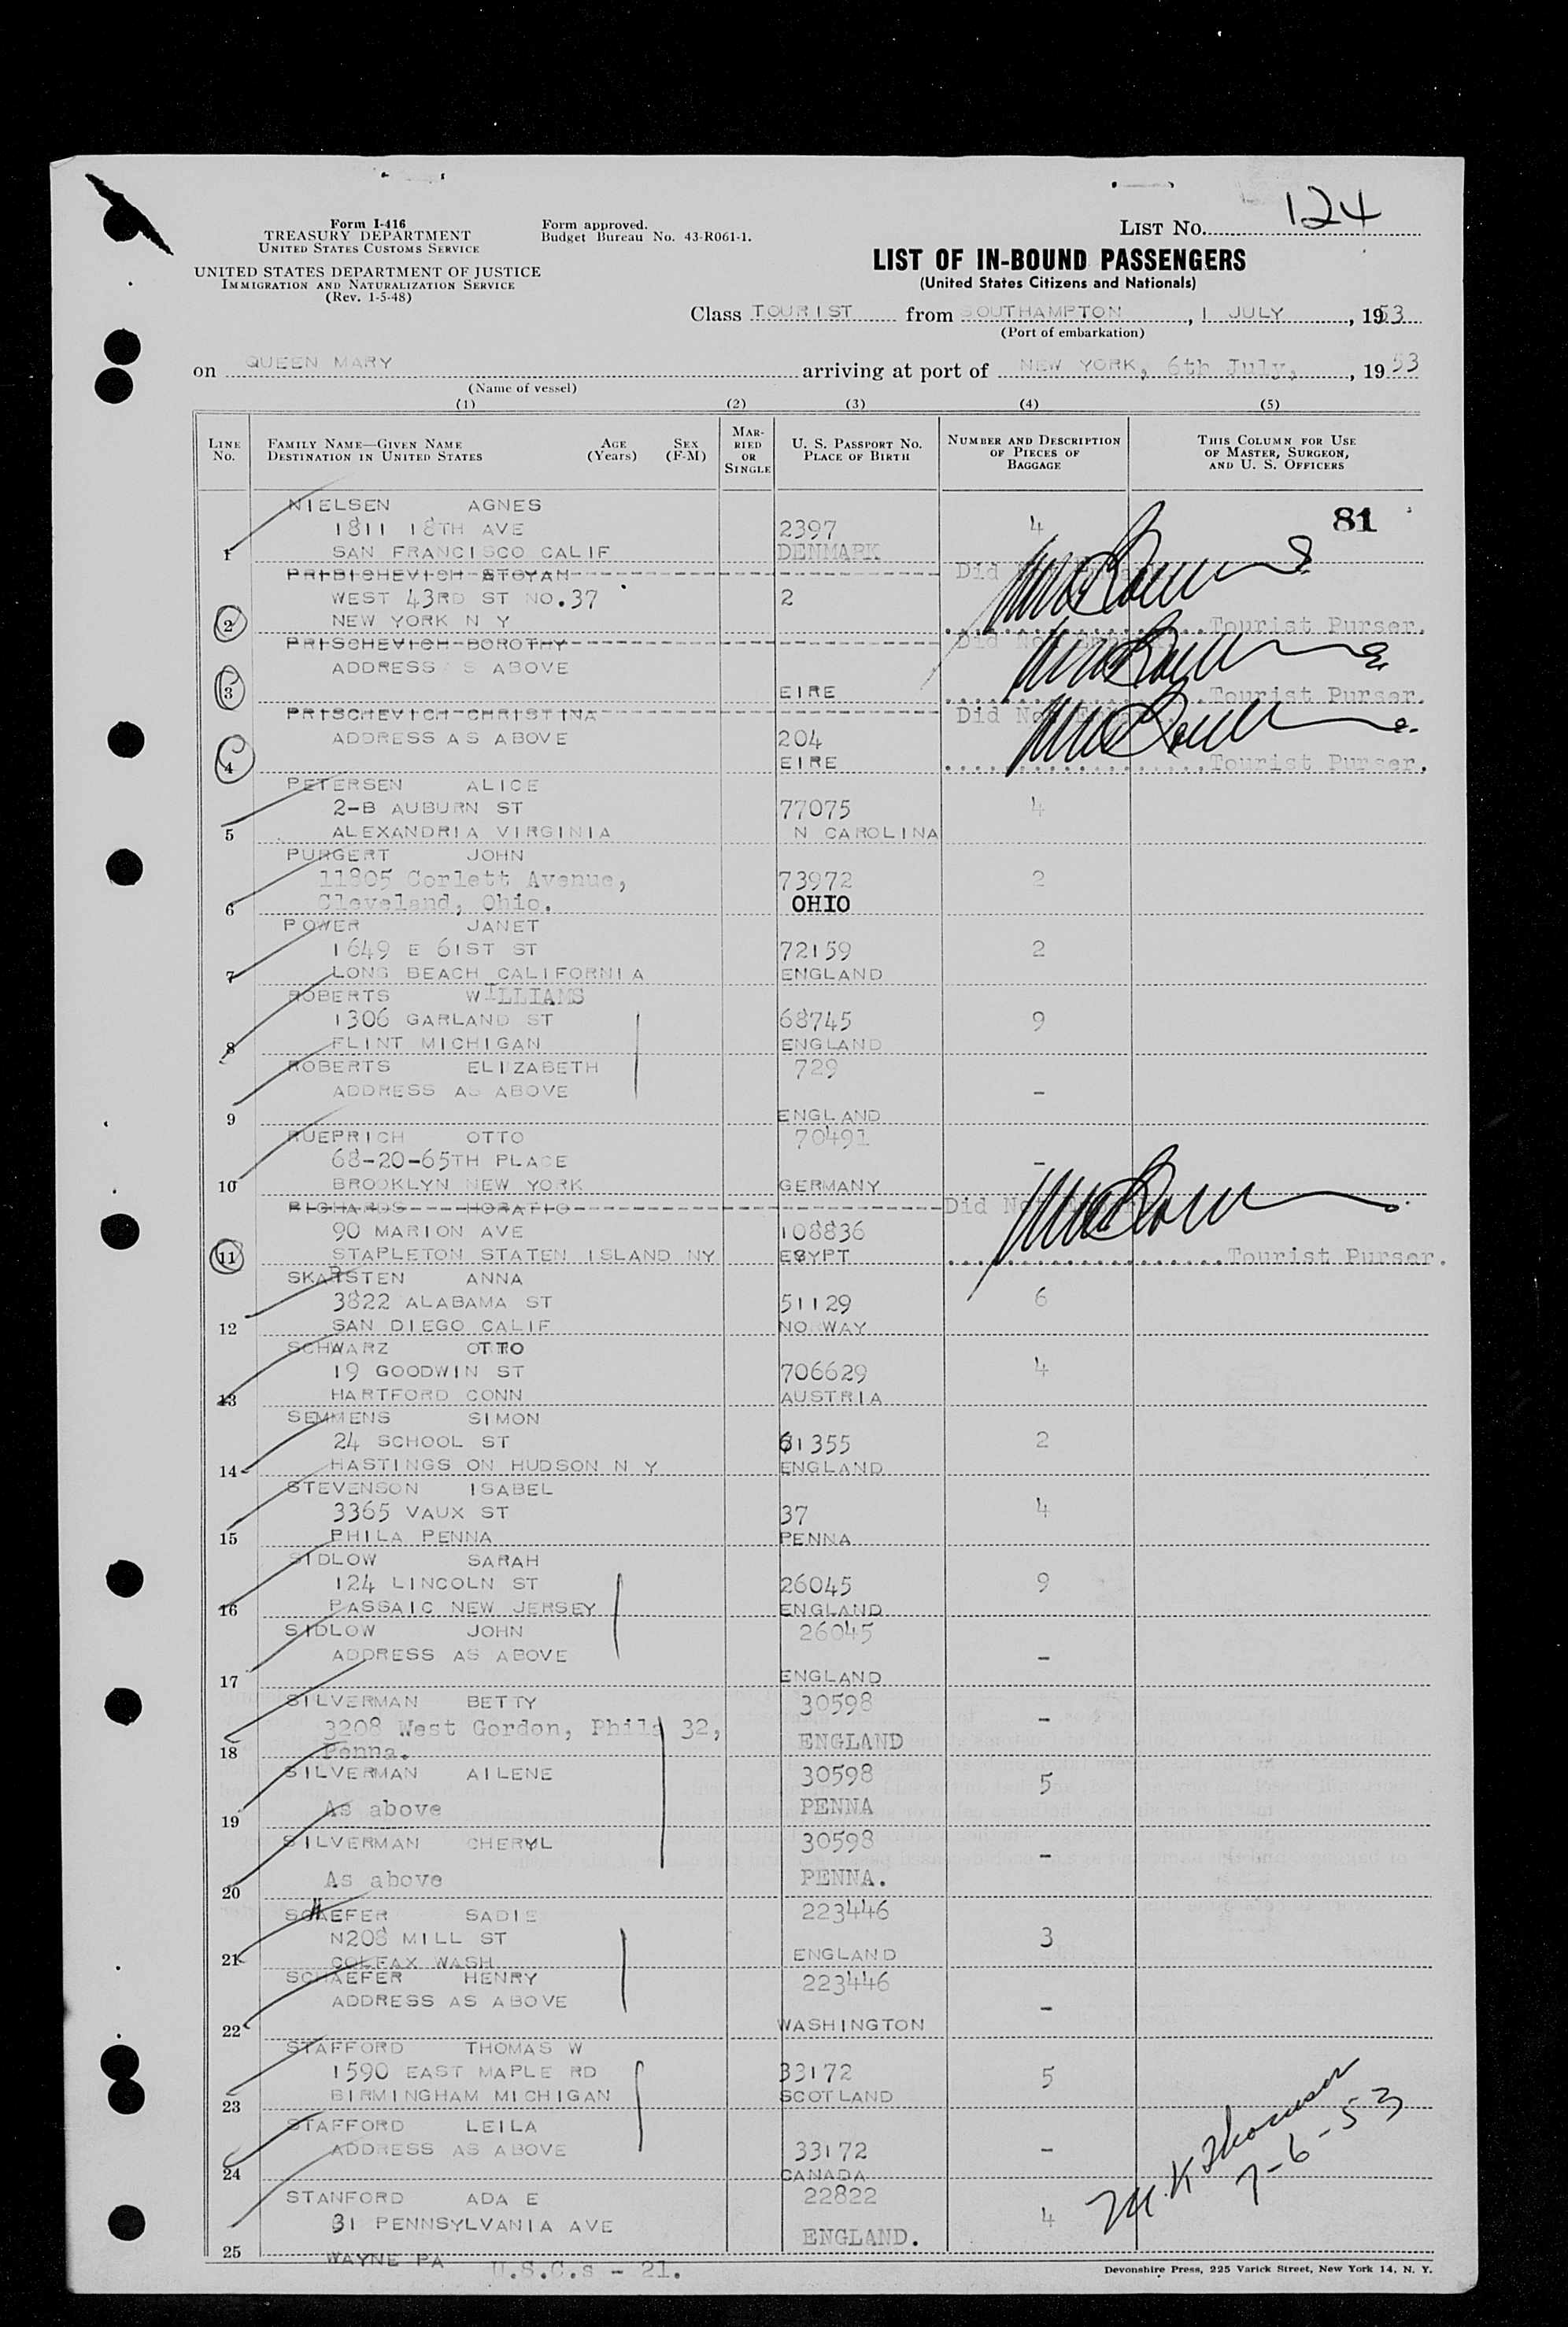 124
Form I-416
TREASURY DEPARTMENT
UNITED STATES CUSTOMS SERVICE
UNITED STATES DEPARTMENT OF JUSTICE
IMMIGRATION AND NATURALIZATION SERVICE
(Rev. 1-5-48)
Form approved.
Budget Bureau No. 43-R061-1.
LIST No.
LIST OF IN-BOUND PASSENGERS
(United States Citizens and Nationals)
Class TOURIST from SOUTHAMPTON, 1 JULY, 1953
(Port of embarkation)
on QUEEN MARY arriving at port of NEW YORK, 6th July, 1953
(Name of vessel)
(1) (2) (3) (4) (5)
LINE No. FAMILY NAME—GIVEN NAME DESTINATION IN UNITED STATES AGE (Years) SEX (F-M) MARRIED OR SINGLE U. S. PASSPORT No. PLACE OF BIRTH NUMBER AND DESCRIPTION OF PIECES OF BAGGAGE THIS COLUMN FOR USE OF MASTER, SURGEON, AND U. S. OFFICERS
NIELSEN AGNES 81
1811 18TH AVE 2397 4
1 SAN FRANCISCO CALIF DENMARK
PRIBICHEVICH STOYAN Did
WEST 43RD ST NO.37 2
2 NEW YORK N Y Tourist Purser.
PRISCHEVICH DOROTHY Did Not
ADDRESS S ABOVE
3 EIRE Tourist Purser.
PRISCHEVICH CHRISTINA Did Not
ADDRESS AS ABOVE 204
4 EIRE Tourist Purser.
PETERSEN ALICE
2-B AUBURN ST 77075 4
5 ALEXANDRIA VIRGINIA N CAROLINA
PURGERT JOHN
11805 Corlett Avenue, 73972 2
6 Cleveland, Ohio. OHIO
POWER JANET
1649 E 61ST ST 72159 2
7 LONG BEACH CALIFORNIA ENGLAND
ROBERTS WILLIAMS
1306 GARLAND ST 68745 9
8 FLINT MICHIGAN ENGLAND
ROBERTS ELIZABETH 729
ADDRESS AS ABOVE -
9 ENGLAND
RUEPRICH OTTO 70491
68-20-65TH PLACE -
10 BROOKLYN NEW YORK GERMANY
RICHARDS HORATIO Did Not
90 MARION AVE 108836
11 STAPLETON STATEN ISLAND NY EGYPT Tourist Purser.
SKARSTEN ANNA
3822 ALABAMA ST 51129 6
12 SAN DIEGO CALIF NORWAY
SCHWARZ OTTO
19 GOODWIN ST 706629 4
13 HARTFORD CONN AUSTRIA
SEMMENS SIMON
24 SCHOOL ST 61355 2
14 HASTINGS ON HUDSON N Y ENGLAND
STEVENSON ISABEL
3365 VAUX ST 37 4
15 PHILA PENNA PENNA
SIDLOW SARAH
124 LINCOLN ST 26045 9
16 PASSAIC NEW JERSEY ENGLAND
SIDLOW JOHN 26045
ADDRESS AS ABOVE -
17 ENGLAND
SILVERMAN BETTY 30598
3208 West Gordon, Phila 32, -
18 Penna. ENGLAND
SILVERMAN AILENE 30598 5
19 As above PENNA
SILVERMAN CHERYL 30598 -
20 As above PENNA.
SCHAEFER SADIE 223446
N208 MILL ST 3
21 COLFAX WASH ENGLAND
SCHAEFER HENRY 223446
ADDRESS AS ABOVE -
22 WASHINGTON
STAFFORD THOMAS W
1590 EAST MAPLE RD 33172 5
23 BIRMINGHAM MICHIGAN SCOTLAND
STAFFORD LEILA
ADDRESS AS ABOVE 33172 -
24 CANADA
STANFORD ADA E 22822
31 PENNSYLVANIA AVE 4
25 WAYNE PA ENGLAND.
7-6-53
U.S.C.s - 21.
Devonshire Press, 225 Varick Street, New York 14, N. Y.